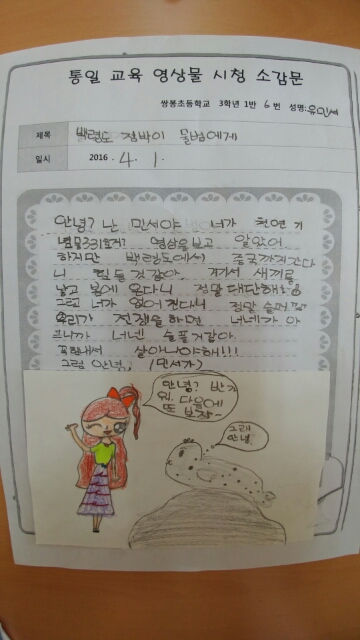 통일 교육 영상물 시청 소감문
쌍봉초등학교 3학년 1반 6번 성명: 유민서
제목 백령도 점박이 물범에게
일시 2016. 4. 1.
안녕? 난 민서야 너가 천연기
념물331호지? 영상을 보고 알았어.
하지만 백령도에서 중국까지간다
니 힘들것같아. 거기서 새끼를
낳고 봄에 온다니 정말 대단해
그런 너가 없어진다니 정말 슬퍼
우리가 전쟁을 하면 너네가 아
프니까 너넨 슬플거같아.
꼭힘내서 살아나야해!!!
그럼 안녕, (민서가)
안녕? 반가
워. 다음에
또 보자~
그래
안녕